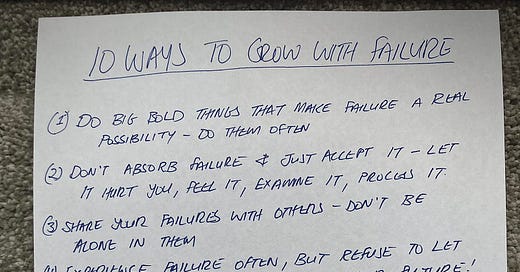 10 WAYS TO GROW WITH FAILURE
(1) DO BIG BOLD THINGS THAT MAKE FAILURE A REAL
POSSIBILITY - DO THEM OFTEN
(2) DON'T ABSORB FAILURE & JUST ACCEPT IT - LET
IT HURT YOU, FEEL IT, EXAMINE IT, PROCESS IT.
(3) SHARE YOUR FAILURES WITH OTHERS - DON'T BE
ALONE IN THEM
EXPERIENCE FAILURE OFTEN, BUT REFUSE TO LET